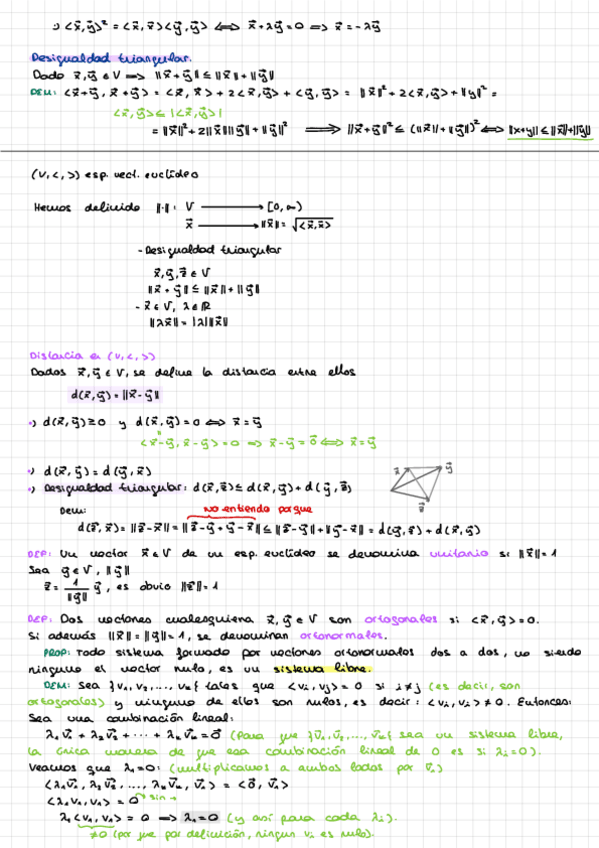 ·) <x⃗,y⃗>² = <x⃗,x⃗><y⃗,y⃗> ⟺ x⃗+λy⃗=0 ⟹ x⃗=-λy⃗
Desigualdad triangular.
Dado x⃗,y⃗ ∈ V ⟹ ||x⃗+y⃗|| ≤ ||x⃗||+||y⃗||
DEM: <x⃗+y⃗, x⃗+y⃗> = <x⃗,x⃗> + 2<x⃗,y⃗> + <y⃗,y⃗> = ||x⃗||² + 2<x⃗,y⃗> + ||y||² =
<x⃗,y⃗> ≤ |<x⃗,y⃗>|
= ||x⃗||² + 2||x⃗||||y⃗|| + ||y⃗||² ⟹ ||x⃗+y⃗||² ≤ (||x⃗||+||y⃗||)² ⟺ ||x+y|| ≤ ||x⃗||+||y⃗||
(V,<,>) esp. vect. euclídeo
Hemos definido ||·||: V ⟶ [0,∞)
x⃗ ⟶ ||x⃗|| = √<x⃗,x⃗>
- Desigualdad triangular
x⃗,y⃗,z⃗ ∈ V
||x⃗+y⃗|| ≤ ||x⃗||+||y⃗||
- x⃗ ∈ V, λ ∈ ℝ
||λx⃗|| = |λ|||x⃗||
Distancia en (V,<,>)
Dados x⃗,y⃗ ∈ V, se define la distancia entre ellos
d(x⃗,y⃗) = ||x⃗-y⃗||
·) d(x⃗,y⃗) ≥ 0 y d(x⃗,y⃗) = 0 ⟺ x⃗=y⃗
<x⃗-y⃗, x⃗-y⃗> = 0 ⟹ x⃗-y⃗=0⃗ ⟺ x⃗=y⃗
·) d(x⃗,y⃗) = d(y⃗,x⃗)
·) Desigualdad triangular: d(x⃗,z⃗) ≤ d(x⃗,y⃗) + d(y⃗,z⃗)
x⃗ y⃗ z⃗
Dem: no entiendo porque
d(z⃗,x⃗) = ||z⃗-x⃗|| = ||z⃗-y⃗+y⃗-x⃗|| ≤ ||z⃗-y⃗||+||y⃗-x⃗|| = d(y⃗,z⃗) + d(x⃗,y⃗)
DEF: Un vector x⃗ ∈ V de un esp. euclídeo se denomina unitario si ||x⃗||=1
Sea y⃗ ∈ V, ||y⃗||
z⃗ = 1/||y⃗|| y⃗, es obvio ||z⃗||=1
DEF: Dos vectores cualesquiera x⃗,y⃗ ∈ V son ortogonales si <x⃗,y⃗>=0.
Si además ||x⃗||=||y⃗||=1, se denominan ortonormales.
PROP: Todo sistema formado por vectores ortonormales dos a dos, no siendo
ninguno el vector nulo, es un sistema libre.
DEM: Sea {v₁,v₂,...,vₘ} tales que <vᵢ,vⱼ>=0 si i≠j (es decir, son
ortogonales) y ninguno de ellos son nulos, es decir: <vᵢ,vᵢ> ≠ 0. Entonces:
Sea una combinación lineal:
λ₁v⃗₁ + λ₂v⃗₂ + ··· + λₘv⃗ₘ = 0⃗ (Para que {v⃗₁,v⃗₂,...,v⃗ₘ} sea un sistema libre,
la única manera de que esa combinación lineal de 0 es si λᵢ=0).
Veamos que λ₁=0: (multiplicamos a ambos lados por v⃗₁)
<λ₁v⃗₁, λ₂v⃗₂, ..., λₘv⃗ₘ, v⃗₁> = <0⃗, v⃗₁>
<λ₁v₁,v₁> = 0
λ₁<v₁,v₁> = 0 ⟹ λ₁=0 (y así para cada λᵢ).
≠0 (porque por definición, ningun vᵢ es nulo).